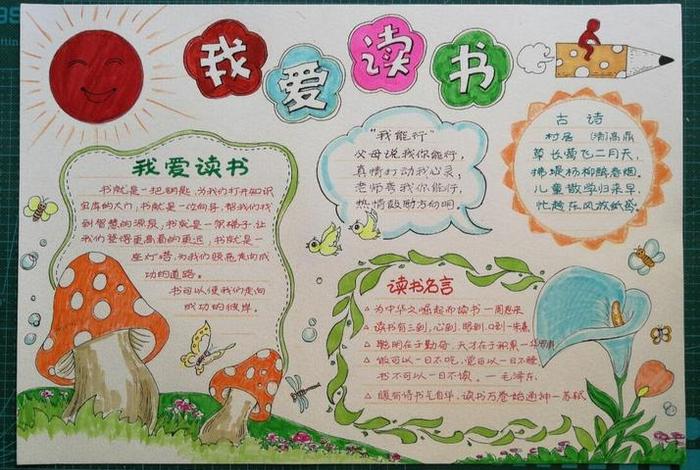 我爱读书
我爱读书
书就是一把钥匙,为我们打开知识
宝库的大门,书就是一位向导,帮我们找
到智慧的源泉,书就是一架梯子,让
我们登得更高看的更远,书就是一
座灯塔,为我们照亮走向成
功的道路。
书可以使我们走向
成功的彼岸。
"我能行"
父母说我你能行,
真情打动我心灵,
老师夸我你能行,
热情鼓励方向明。
古诗
村居 (清)高鼎
草长莺飞二月天,
拂堤杨柳醉春烟,
儿童散学归来早,
忙趁东风放纸鸢。
读书名言
为中华之崛起而读书 一周恩来
读书有三到,心到、眼到、口到一朱熹
聪明在于勤奋,天才在于积累一华罗庚
饭可以一日不吃,觉可以一日不睡
书不可以一日不读。一毛泽东
腹有诗书气自华,读书万卷始通神一苏轼